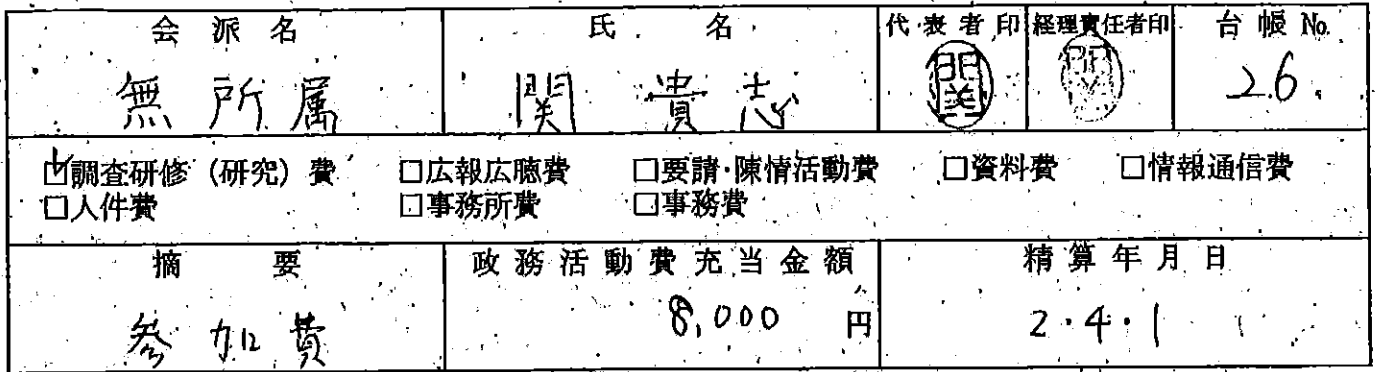 会派名 氏名 代表者印 経理責任者印 台帳No.
無所属 関 貴志 関 関 26.
☑調査研修（研究）費 □広報広聴費 □要請・陳情活動費 □資料費 □情報通信費
□人件費 □事務所費 □事務費
摘要 政務活動費充当金額 精算年月日
参加費 8,000 円 2・4・1